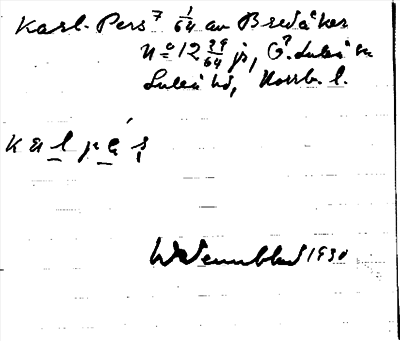 Karl-Pers 7 1/64 av Bredåker
N:o 12 39/64 js, G. Luleå sn
Luleå hd, Norrb. l.
kạlpạs
WWennblad 1930